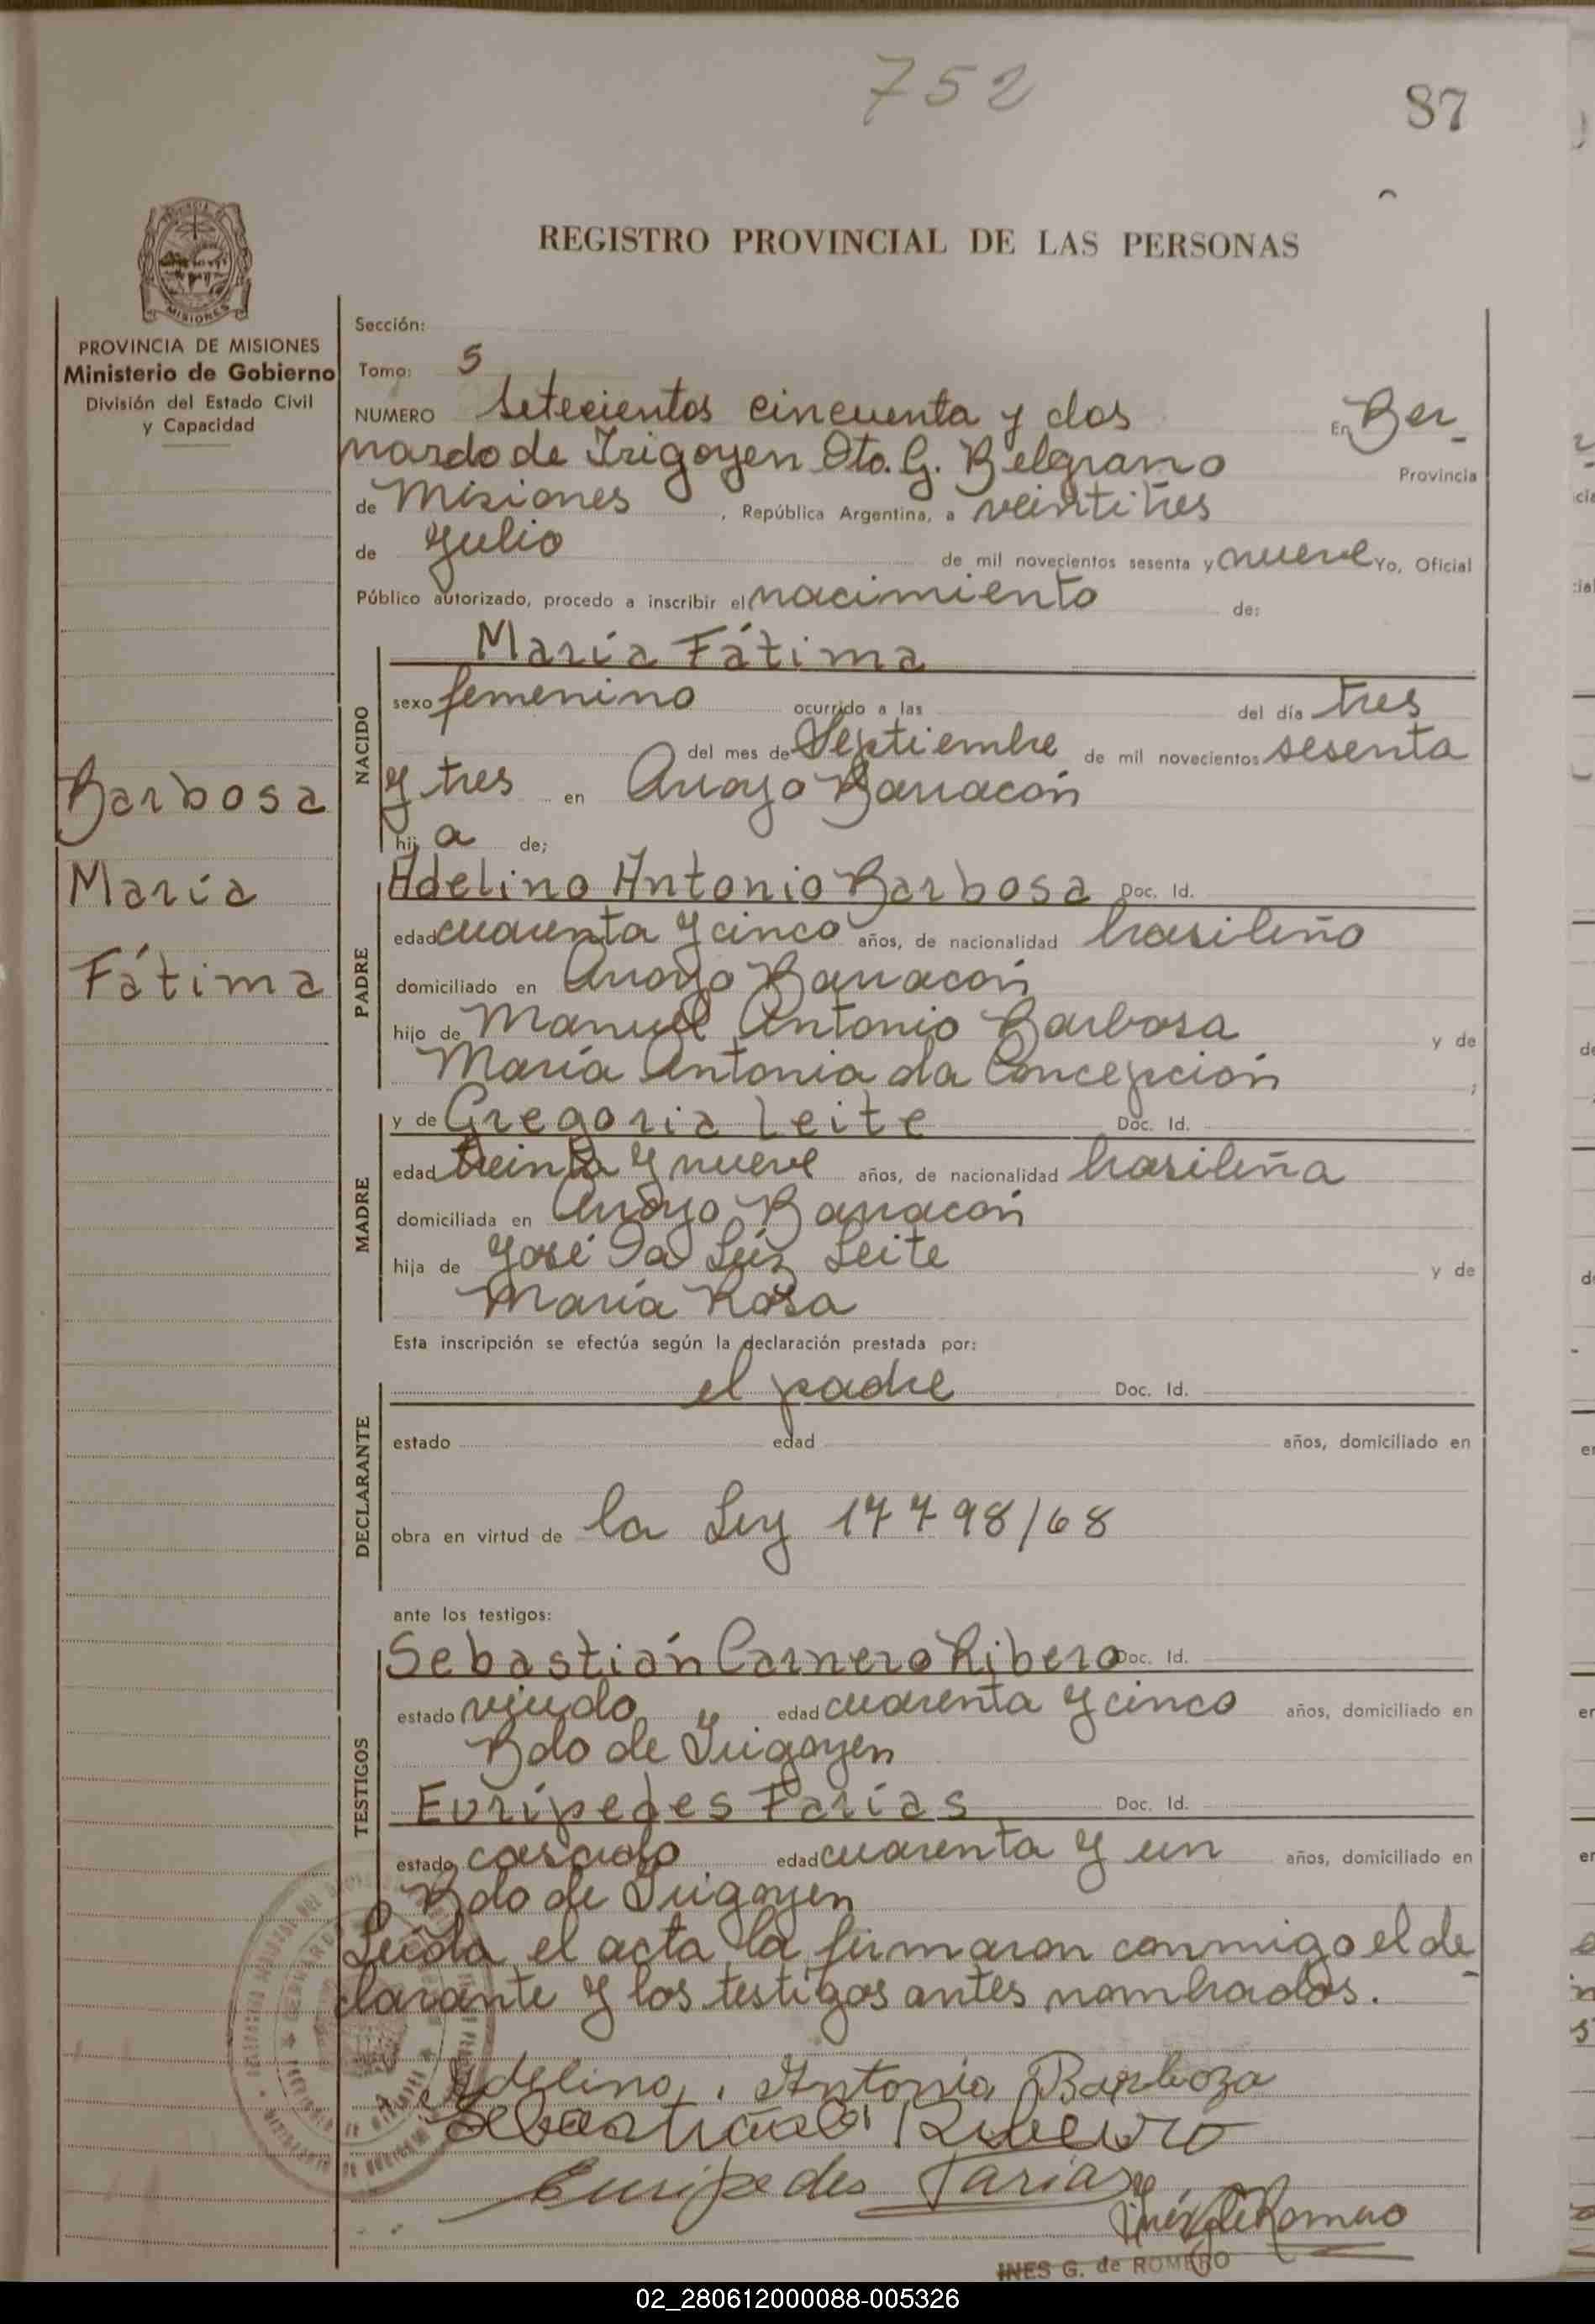 752
87
REGISTRO PROVINCIAL DE LAS PERSONAS
MISIONES
PROVINCIA DE MISIONES
Ministerio de Gobierno
División del Estado Civil
y Capacidad
Barbosa
María
Fátima
Sección:
Tomo: 5
NUMERO Setecientos cincuenta y dos En Ber-
nardo de Irigoyen Dto. G. Belgrano Provincia
de Misiones, República Argentina, a veintitres
de Julio de mil novecientos sesenta y nueve Yo, Oficial
Público autorizado, procedo a inscribir el nacimiento de:
NACIDO
María Fátima
sexo femenino ocurrido a las del día tres
del mes de Septiembre de mil novecientos sesenta
y tres en Arroyo Barracón
hij a de;
PADRE
Adelino Antonio Barbosa Doc. Id.
edad cuarenta y cinco años, de nacionalidad brasileño
domiciliado en Arroyo Barracón
hijo de Manuel Antonio Barbosa y de
María Antonia da Concepción ;
MADRE
y de Gregoria Leite Doc. Id.
edad treinta y nueve años, de nacionalidad brasileña
domiciliada en Arroyo Barracón
hija de José Da Luz Leite y de
María Rosa
Esta inscripción se efectúa según la declaración prestada por:
DECLARANTE
el padre Doc. Id.
estado edad años, domiciliado en
obra en virtud de la Ley 17798/68
ante los testigos:
TESTIGOS
Sebastián Carnero Ribero Doc. Id.
estado viudo edad cuarenta y cinco años, domiciliado en
Bdo de Irigoyen
Eurípedes Farías Doc. Id.
estado casado edad cuarenta y un años, domiciliado en
Bdo de Irigoyen
Leída el acta la firmaron conmigo el de-
clarante y los testigos antes nombrados.
Adelino Antonio Barboza
Ribeiro
Euripedes Farias
Inés G de Romero
INES G. de ROMERO
02_280612000088-005326